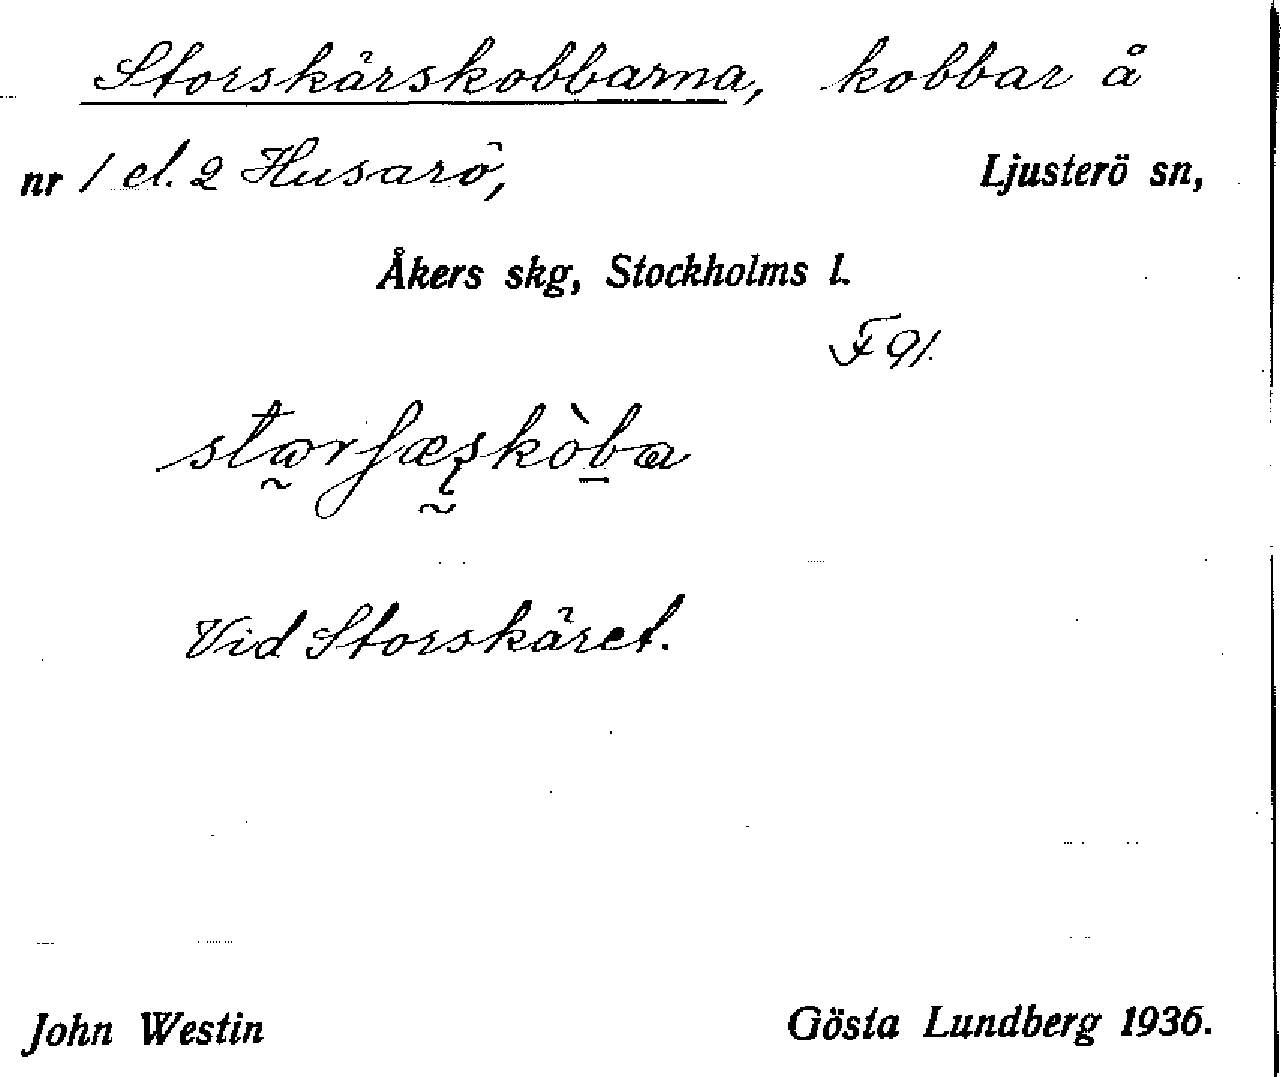 Storskärskobbarna, kobbar å
nr 1 el. 2 Husarö, Ljusterö sn,
Åkers skg, Stockholms l.
F 91.
Vid Storskäret.
John Westin Gösta Lundberg 1936.